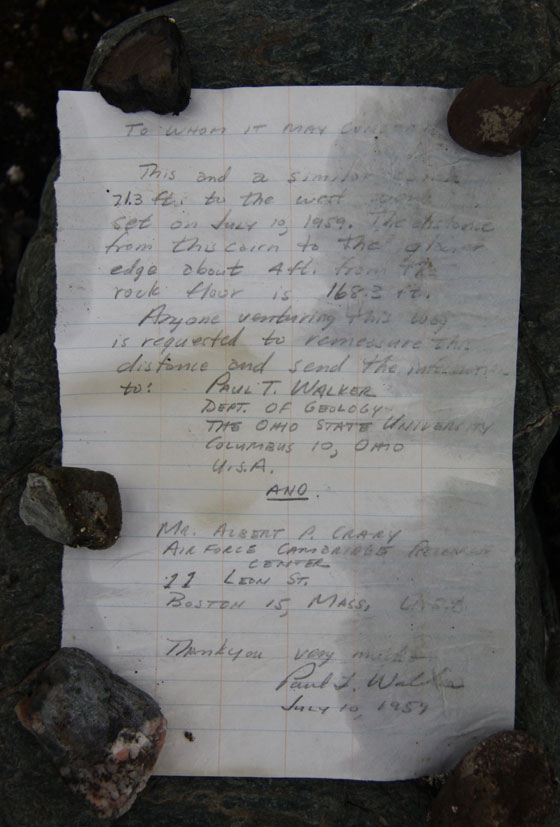 TO WHOM IT MAY CONCERN
This and a similar cairn
71.3 ft. to the west were
set on July 10, 1959. The distance
from this cairn to the glacier
edge about 4 ft. from the
rock floor is 168.3 ft.
Anyone venturing this way
is requested to remeasure this
distance and send the information
to: PAUL T. WALKER
DEPT. OF GEOLOGY
THE OHIO STATE UNIVERSITY
COLUMBUS 10, OHIO
U.S.A.
AND.
MR. ALBERT P. CRARY
AIR FORCE CAMBRIDGE RESEARCH
CENTER
11 LEON ST.
BOSTON 15, MASS. U.S.A.
Thankyou very much
Paul T. Walker
July 10, 1959